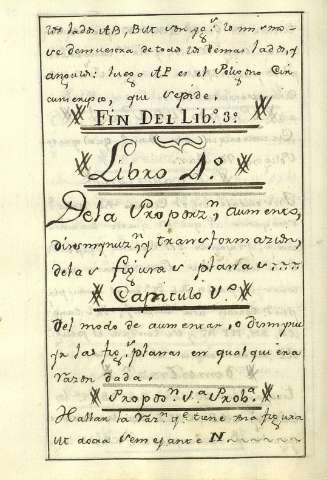 los lados AB, BV son yg.ˢ lo mismo
se demuestra de todos los demas lados, y
angulos: luego AP es el Poligono Cir
cunscripto, que se pide.
FIN DEL Lib.º 3º
Libro 4.º
De la Proporz.ⁿ, aumento,
diminuz.ⁿ, y transformazion,
de las figuras planas
Capitulo V.º
Del modo de aumentar, o diminu
ir las fig.ˢ planas en qualquiera
razon dada.
Propos.ⁿ 1.ª Prob.ª
Hallar la raz.ⁿ q.ᵉ tiene una figura
a otra semejante N.